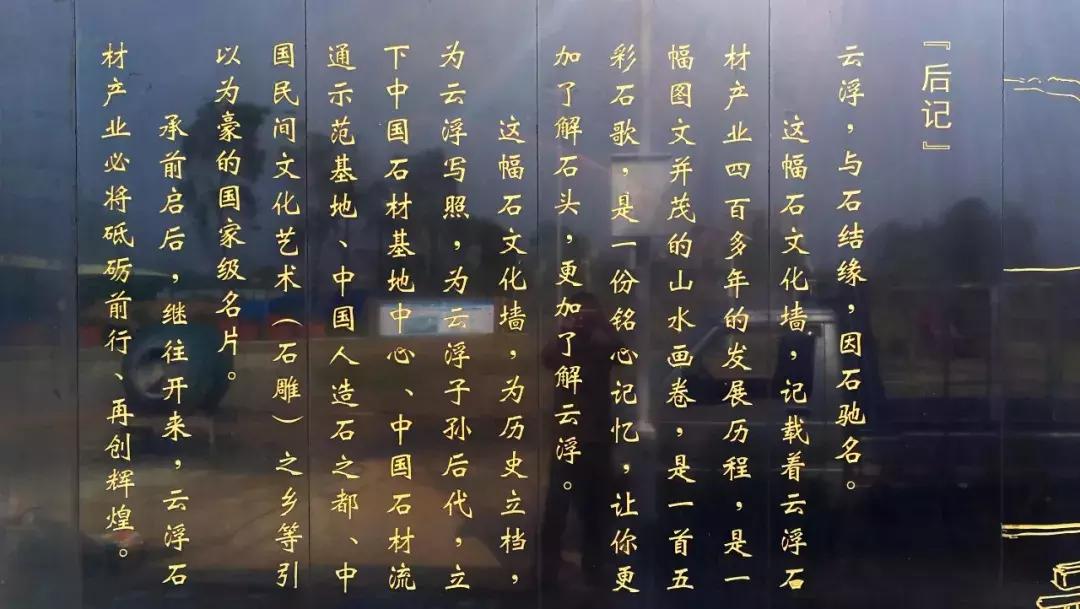 『后记』
云浮，与石结缘，因石驰名。
这幅石文化墙，记载着云浮石
材产业四百多年的发展历程，是一
幅图文并茂的山水画卷，是一首五
彩石歌，是一份铭心记忆，让你更
加了解石头，更加了解云浮。
这幅石文化墙，为历史立档，
为云浮写照，为云浮子孙后代，立
下中国石材基地中心、中国石材流
通示范基地、中国人造石之都、中
国民间文化艺术（石雕）之乡等引
以为豪的国家级名片。
承前启后，继往开来，云浮石
材产业必将砥砺前行、再创辉煌。